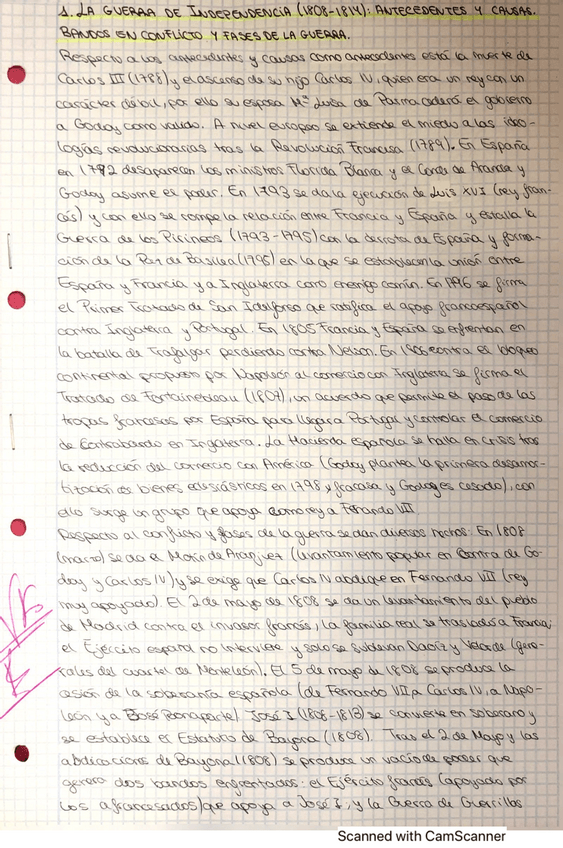 1. LA GUERRA DE INDEPENDENCIA (1808-1814): ANTECEDENTES Y CAUSAS.
BANDOS EN CONFLICTO Y FASES DE LA GUERRA.
Respecto a los antecedentes y causas como antecedentes está la muerte de
Carlos III (1788) y el ascenso de su hijo Carlos IV, quien era un rey con un
carácter débil, por ello su esposa Mª Luisa de Parma cederá el gobierno
a Godoy como valido. A nivel europeo se extiende el miedo a las ideo-
logías revolucionarias tras la Revolución Francesa (1789). En España
en 1792 desaparecen los ministros Florida Blanca y el Conde de Aranda y
Godoy asume el poder. En 1793 se da la ejecución de Luis XVI (rey fran-
cés) y con ello se rompe la relación entre Francia y España y estalla la
Guerra de los Pirineos (1793-1795) con la derrota de España y forma-
ción de la Paz de Basilea (1795) en la que se establecen la unión entre
España y Francia y a Inglaterra como enemigo común. En 1796 se firma
el Primer Tratado de San Ildefonso que ratifica el apoyo francoespañol
contra Inglaterra y Portugal. En 1805 Francia y España se enfrentan en
la batalla de Trafalgar perdiendo contra Nelson. En 1806 contra el bloqueo
continental propuesto por Napoleón al comercio con Inglaterra se firma el
Tratado de Fontainebleau (1807), un acuerdo que permite el paso de las
tropas francesas por España para llegar a Portugal y controlar el comercio
de contrabando en Inglaterra. La Hacienda Española se halla en crisis tras
la reducción del comercio con América (Godoy plantea la primera desamor-
tización de bienes eclesiásticos en 1798, fracasa y Godoy es cesado), con
ello surge un grupo que apoya como rey a Fernando VII
Respecto al conflicto y fases de la guerra se dan diversos hechos: En 1808
(marzo) se da el Motín de Aranjuez (levantamiento popular en contra de Go-
doy y Carlos IV) y se exige que Carlos IV abdique en Fernando VII (rey
muy apoyado). El 2 de mayo de 1808 se da un levantamiento del pueblo
de Madrid contra el invasor francés, la familia real se traslada a Francia,
el Ejército español no interviene y solo se sublevan Daoiz y Velarde (gene-
rales del cuartel de Monteleón). El 5 de mayo de 1808 se produce la
cesión de la soberanía española (de Fernando VII a Carlos IV, a Napo-
león y a José Bonaparte). José I (1808-1813) se convierte en soberano y
se establece el Estatuto de Bayona (1808). Tras el 2 de Mayo y las
abdicaciones de Bayona (1808) se produce un vacío de poder que
genera dos bandos enfrentados: el Ejército francés (apoyado por
los afrancesados) que apoya a José I, y la Guerra de Guerrillas
Scanned with CamScanner